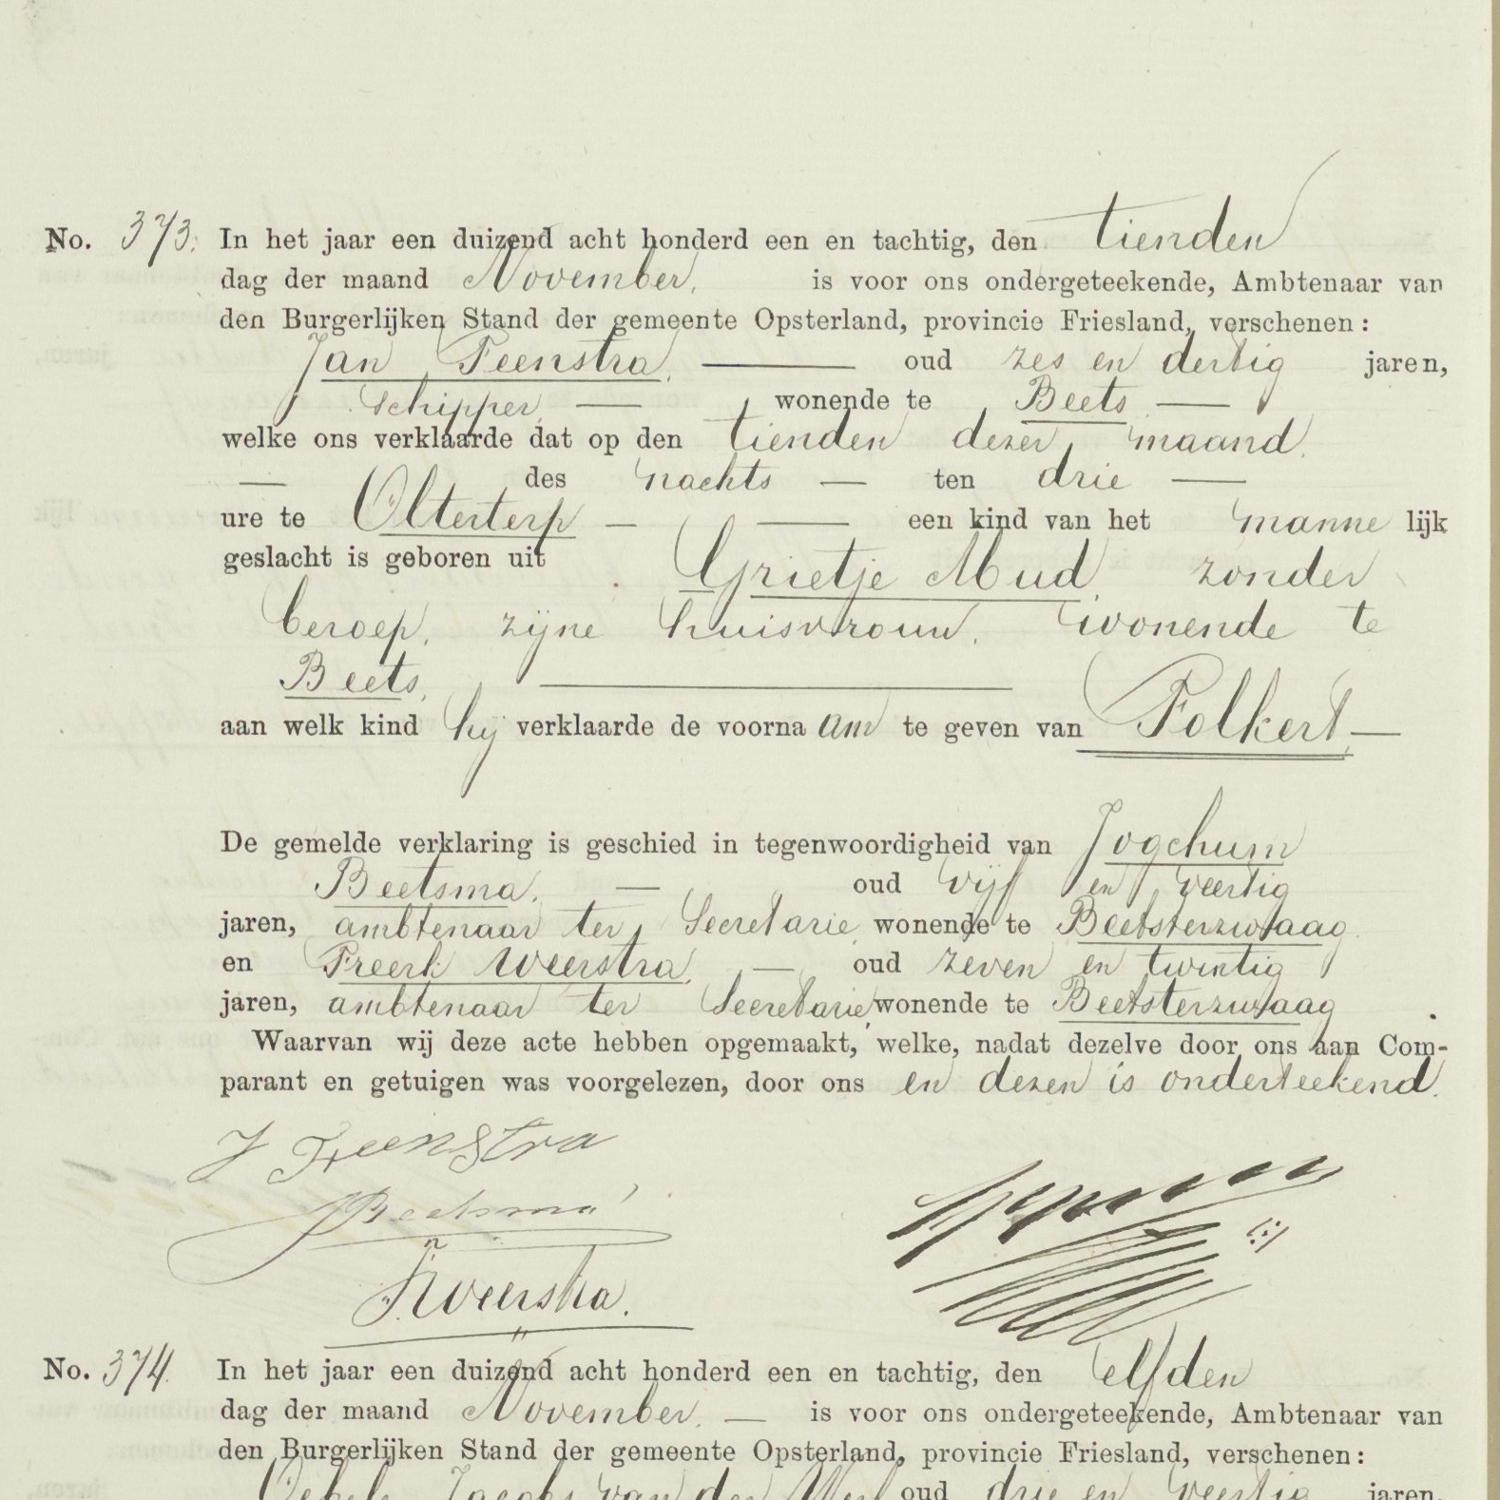 No. 373. In het jaar een duizend acht honderd een en tachtig, den tienden
dag der maand November, is voor ons ondergeteekende, Ambtenaar van
den Burgerlijken Stand der gemeente Opsterland, provincie Friesland, verschenen:
Jan Feenstra, — oud zes en dertig jaren,
schipper, — wonende te Beets —
welke ons verklaarde dat op den tienden dezer maand.
— des nachts — ten drie —
ure te Olterterp — — een kind van het manne lijk
geslacht is geboren uit Grietje Mud, zonder
beroep, zijne huisvrouw, wonende te
Beets, —
aan welk kind hij verklaarde de voorna am te geven van Folkert, —
De gemelde verklaring is geschied in tegenwoordigheid van Jogchum
Beetsma, — oud vijf en veertig
jaren, ambtenaar ter Secretarie, wonende te Beetsterzwaag
en Freerk Weerstra, — oud zeven en twintig
jaren, ambtenaar ter Secretarie, wonende te Beetsterzwaag
Waarvan wij deze acte hebben opgemaakt, welke, nadat dezelve door ons aan Com-
parant en getuigen was voorgelezen, door ons en dezen is onderteekend.
J Feenstra
JBeetsma
F.Weerstra.
No. 374. In het jaar een duizend acht honderd een en tachtig, den elfden
dag der maand November, — is voor ons ondergeteekende, Ambtenaar van
den Burgerlijken Stand der gemeente Opsterland, provincie Friesland, verschenen:
Jacobs van der oud drie en veertig jaren,